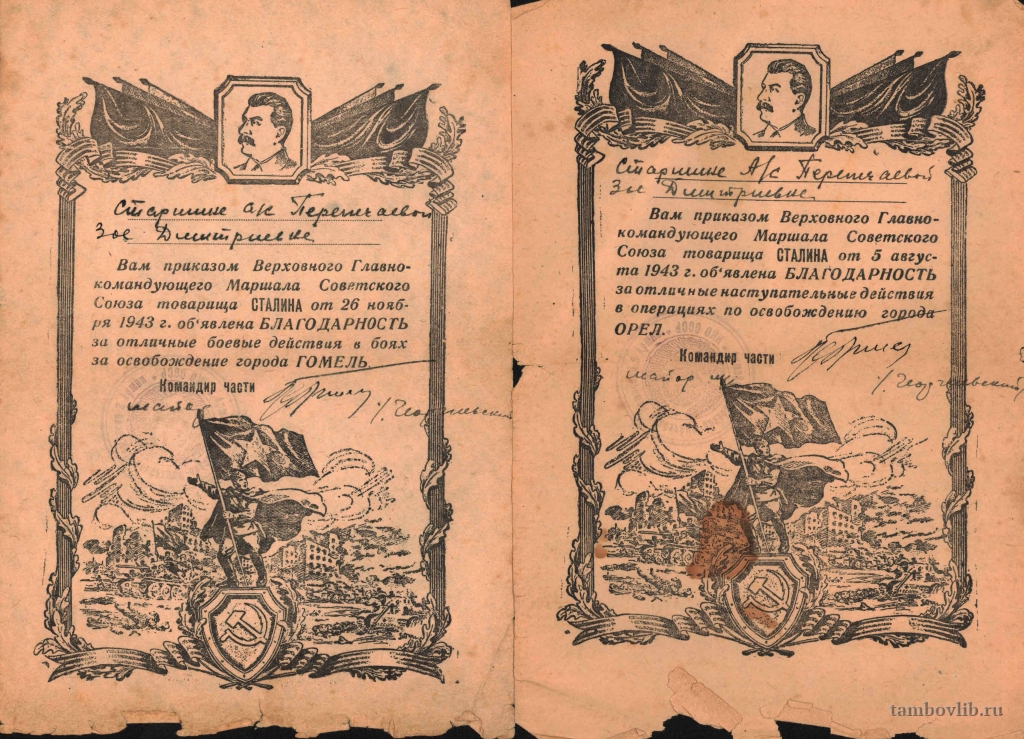 Старшине а/с Перепчаевой
Зое Дмитриевне
Вам приказом Верховного Главно-
командующего Маршала Советского
Союза товарища СТАЛИНА от 26 нояб-
ря 1943 г. об'явлена БЛАГОДАРНОСТЬ
за отличные боевые действия в боях
за освобождение города ГОМЕЛЬ.
Командир части
майор
/Георгиевский
Старшине А/с Перепчаевой
Зое Дмитриевне
Вам приказом Верховного Главно-
командующего Маршала Советского
Союза товарища СТАЛИНА от 5 авгус-
та 1943 г. об'явлена БЛАГОДАРНОСТЬ
за отличные наступательные действия
в операциях по освобождению города
ОРЕЛ.
Командир части
майор
/Георгиевский/
tambovlib.ru